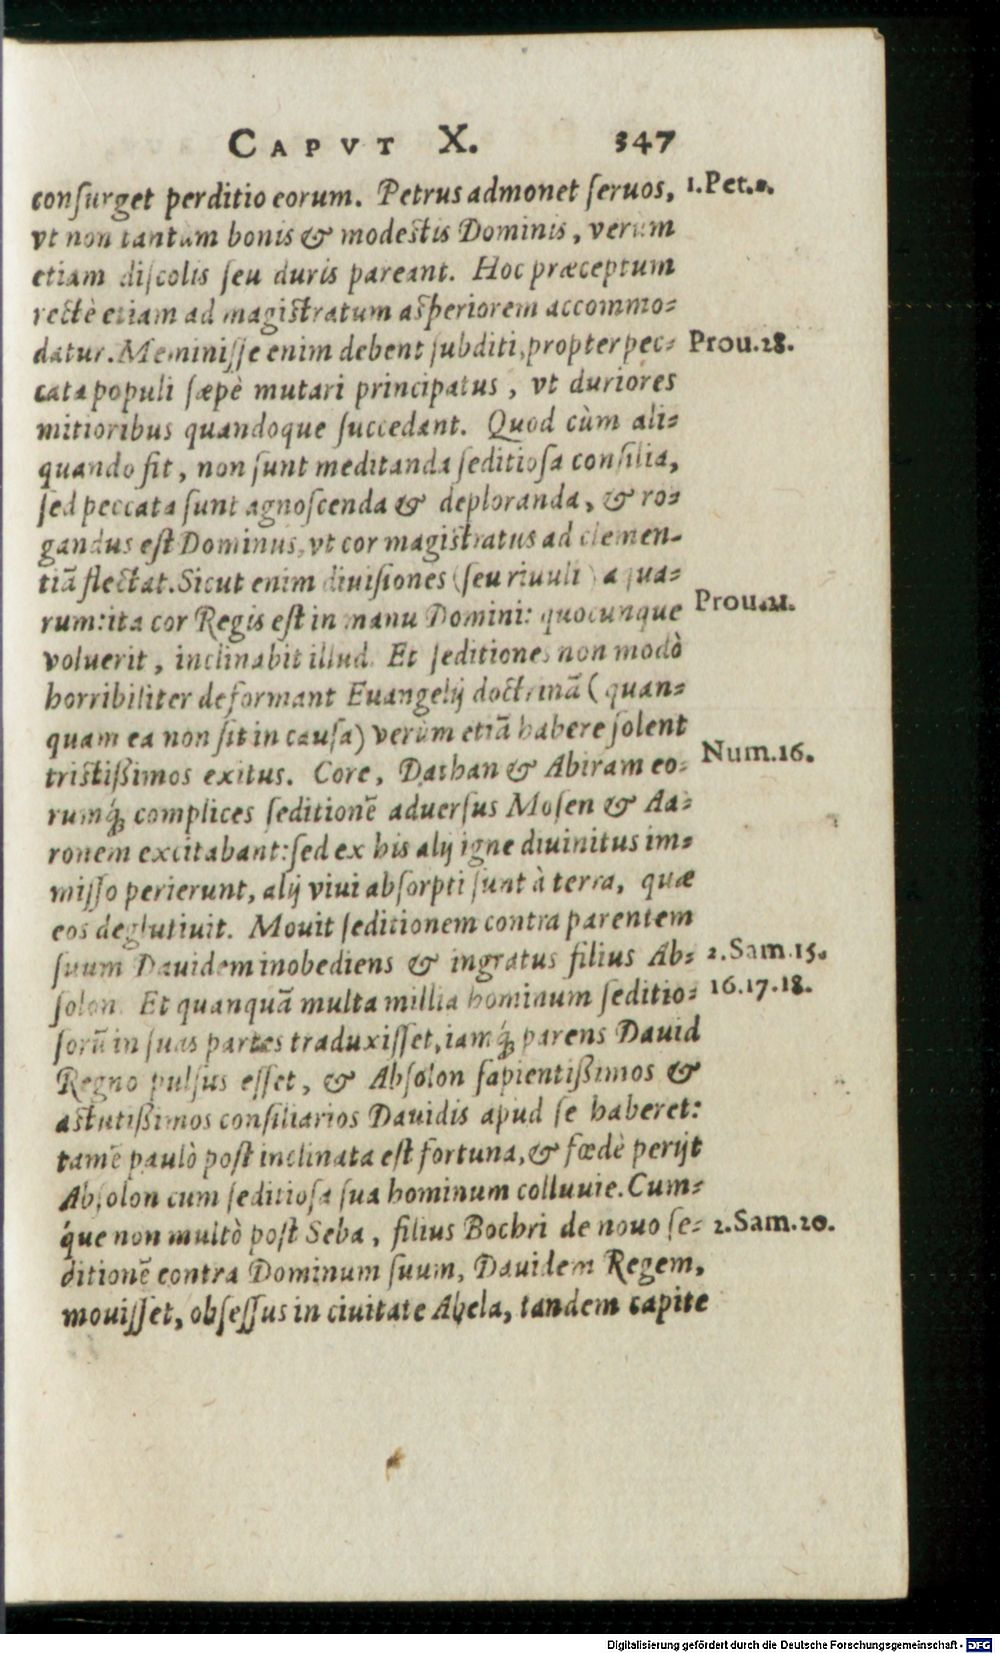 CAPVT X. 347
conſurget perditio eorum. Petrus admonet ſeruos, 1.Pet.2.
vt non tantùm bonis & modeſtis Dominis, verùm
etiam diſcolis ſeu duris pareant. Hoc præceptum
rectè etiam ad magiſtratum aſperiorem accommo-
datur. Meminiſſe enim debent ſubditi, propter pec- Prou.28.
cata populi ſæpè mutari principatus, vt duriores
mitioribus quandoque ſuccedant. Quod cùm ali-
quando fit, non ſunt meditanda ſeditioſa conſilia,
ſed peccata ſunt agnoſcenda & deploranda, & ro-
gandus eſt Dominus, vt cor magiſtratus ad clemen-
tiā flectat. Sicut enim diuiſiones (ſeu riuuli) aqua-
rum: ita cor Regis eſt in manu Domini: quocunque Prou.21.
voluerit, inclinabit illud. Et ſeditiones non modò
horribiliter deformant Euangelij doctrinā (quan-
quam ea non ſit in cauſa) verùm etiā habere ſolent
triſtißimos exitus. Core, Dathan & Abiram eo- Num.16.
rumq́; complices ſeditionē aduerſus Moſen & Aa-
ronem excitabant: ſed ex his alij igne diuinitus im-
miſſo perierunt, alij viui abſorpti ſunt à terra, quæ
eos deglutiuit. Mouit ſeditionem contra parentem
ſuum Dauidem inobediens & ingratus filius Ab- 2.Sam.15.
ſolon. Et quanquā multa millia hominum ſeditio- 16.17.18.
ſorū in ſuas partes traduxiſſet, iamq́; parens Dauid
Regno pulſus eſſet, & Abſolon ſapientißimos &
aſtutißimos conſiliarios Dauidis apud ſe haberet:
tamē paulò poſt inclinata eſt fortuna, & fœdè perijt
Abſolon cum ſeditioſa ſua hominum colluuie. Cum-
q́ue non multò poſt Seba, filius Bochri de nouo ſe- 2.Sam.20.
ditionē contra Dominum ſuum, Dauidem Regem,
mouiſſet, obſeſſus in ciuitate Abela, tandem capite
Digitalisierung gefördert durch die Deutsche Forschungsgemeinschaft - DFG